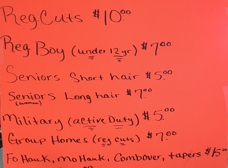 Reg Cuts $10.00
Reg Boy (under 12yr) $7.00
Seniors Short hair $5.00
Seniors (women) Long hair $7.00
Military (active Duty) $5.00
Group Homes (reg cuts) $7.00
Fo Hawk, mo Hawk, Combover, tapers $15.00